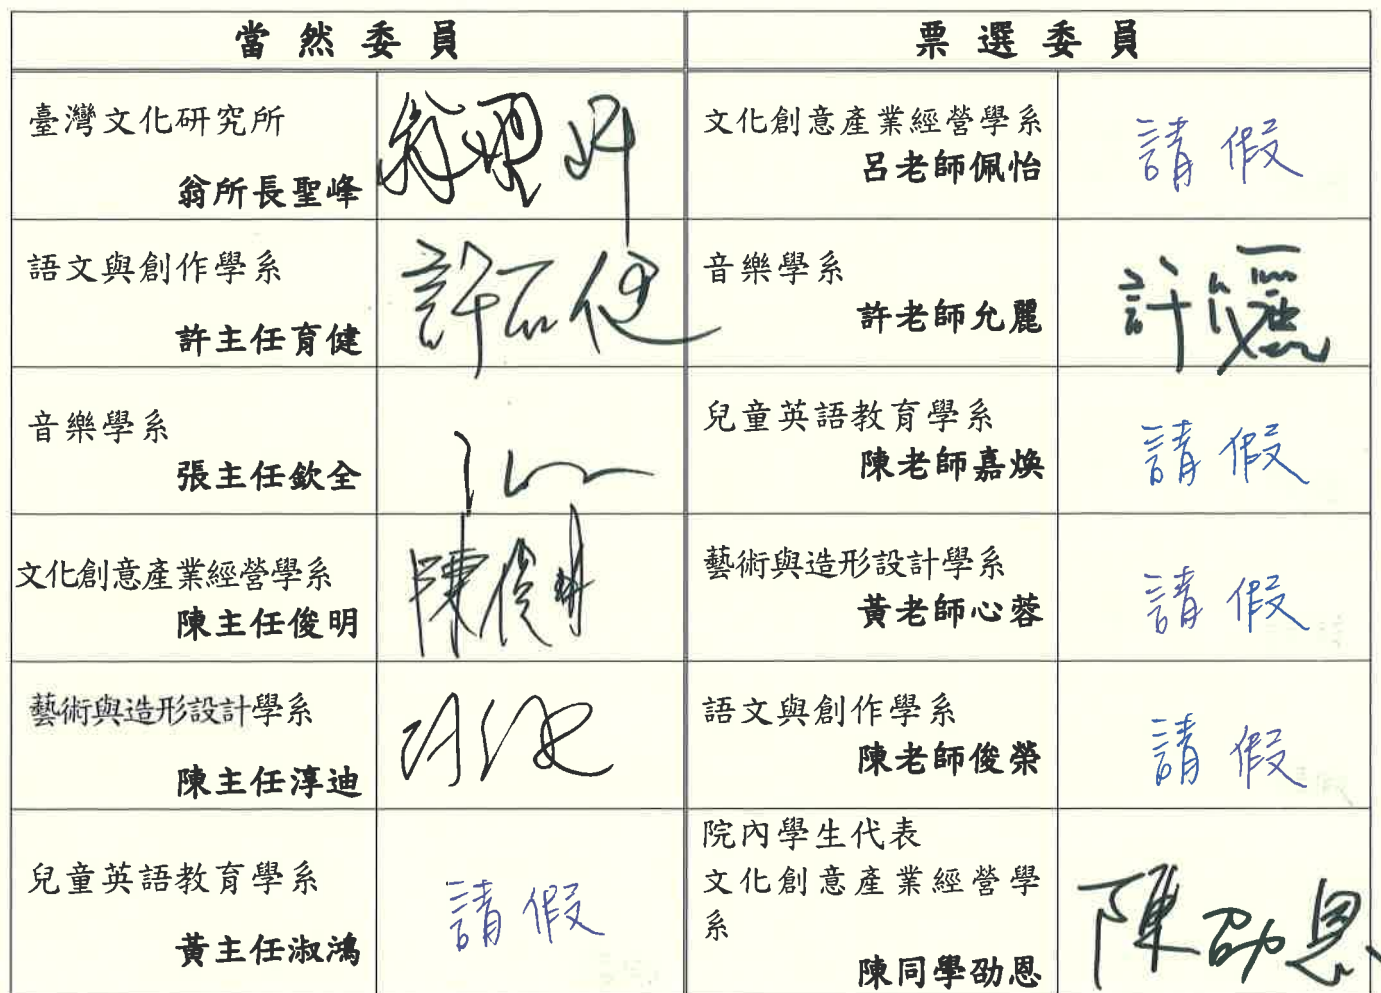 當然委員
票選委員
臺灣文化研究所
翁所長聖峰
翁聖峰
文化創意產業經營學系
呂老師佩怡
請假
語文與創作學系
許主任育健
許育健
音樂學系
許老師允麗
許允麗
音樂學系
張主任欽全
兒童英語教育學系
陳老師嘉煥
請假
文化創意產業經營學系
陳主任俊明
陳俊明
藝術與造形設計學系
黃老師心蓉
請假
藝術與造形設計學系
陳主任淳迪
語文與創作學系
陳老師俊榮
請假
兒童英語教育學系
黃主任淑鴻
請假
院內學生代表
文化創意產業經營學
系
陳同學劭恩
陳劭恩